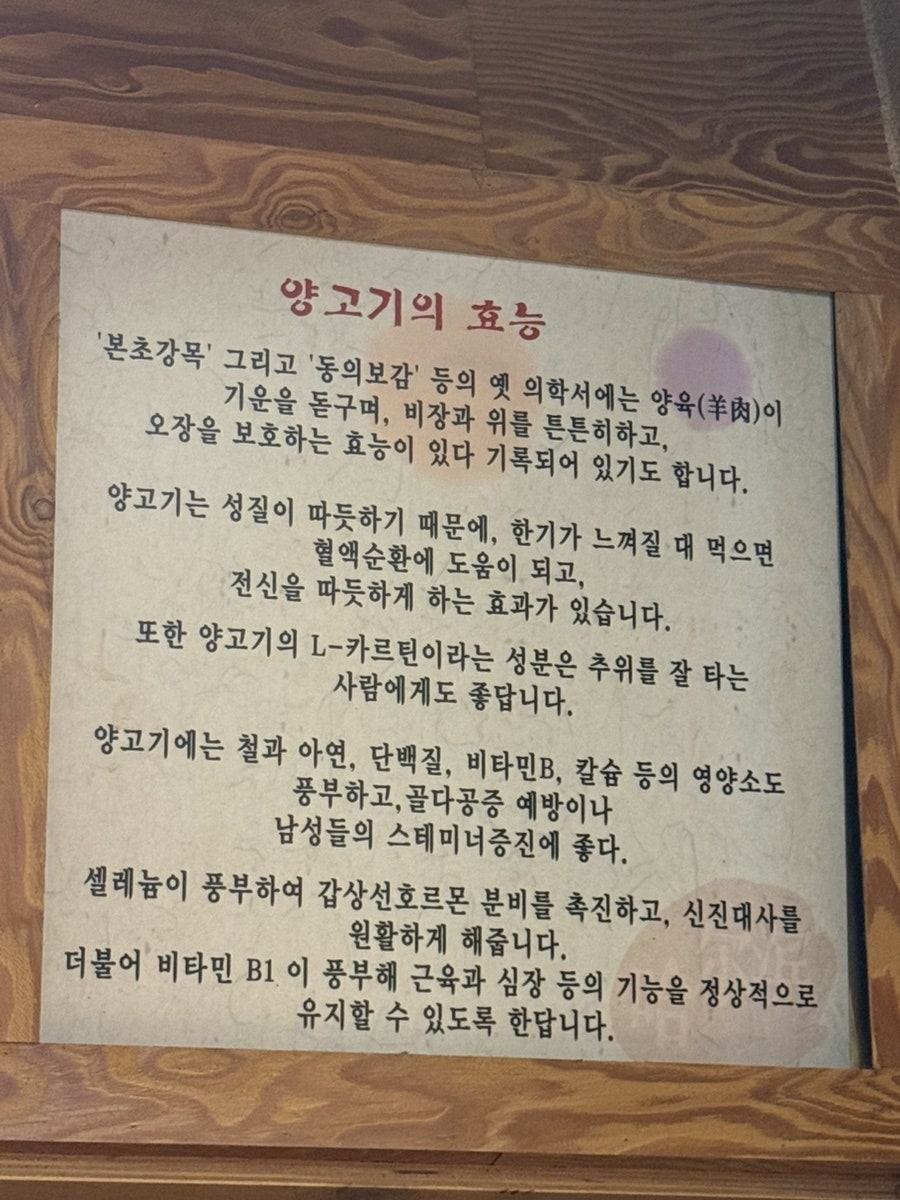 양고기의 효능
'본초강목' 그리고 '동의보감' 등의 옛 의학서에는 양육(羊肉)이
기운을 돋구며, 비장과 위를 튼튼히하고,
오장을 보호하는 효능이 있다 기록되어 있기도 합니다.
양고기는 성질이 따듯하기 때문에, 한기가 느껴질 대 먹으면
혈액순환에 도움이 되고,
전신을 따듯하게 하는 효과가 있습니다.
또한 양고기의 L-카르틴이라는 성분은 추위를 잘 타는
사람에게도 좋답니다.
양고기에는 철과 아연, 단백질, 비타민B, 칼슘 등의 영양소도
풍부하고,골다공증 예방이나
남성들의 스테미너증진에 좋다.
셀레늄이 풍부하여 갑상선호르몬 분비를 촉진하고, 신진대사를
원활하게 해줍니다.
더불어 비타민 B1 이 풍부해 근육과 심장 등의 기능을 정상적으로
유지할 수 있도록 한답니다.